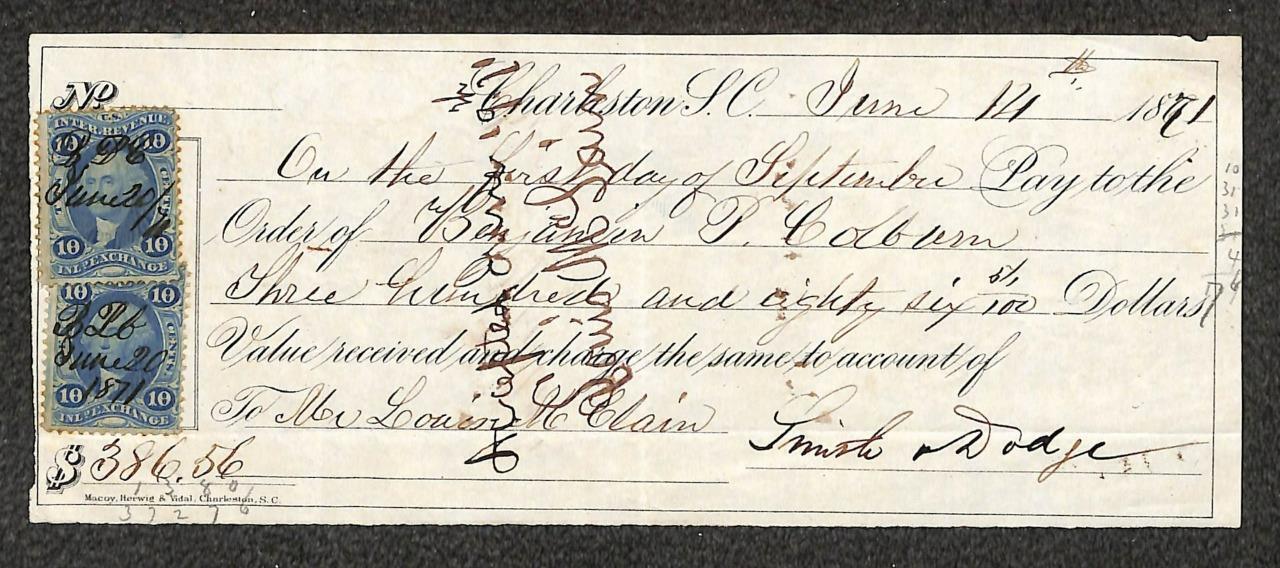 No
Charleston S.C. June 14th 1871
On the first day of September Pay to the
Order of Benjamin P. Colburn
Three hundred and eighty six 56/100 Dollars
Value received and charge the same to account of
To Mr Louis McClain
Smith & Dodge
$ 386.56
Macoy, Herwig & Vidal, Charleston, S.C.
37276
U.S.
INTER. REVENUE
10 10
June 20/71
10 CENTS 10
INL. EXCHANGE
10 10
BPC
June 20
1871
CENTS
10 10
INL. EXCHANGE
Accepted
10
31
31
4